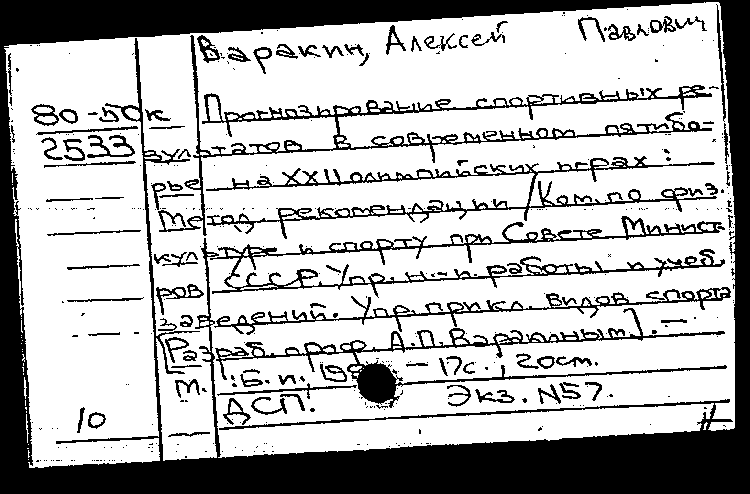 Варакин, Алексей Павлович
80-50к Прогнозирование спортивных ре-
2533 зультатов в современном пятибо-
рье на XXII олимпийских играх :
Метод. рекомендации / Ком. по физ.
культуре и спорту при Совете Минист-
ров СССР. Упр. н-и работы и учеб.
заведений. Упр. прикл. видов спорта
[Разраб. проф. А.П. Варакиным]. —
М. : Б. и., — 17с. ; 20см.
ДСП. Экз. N57.
10